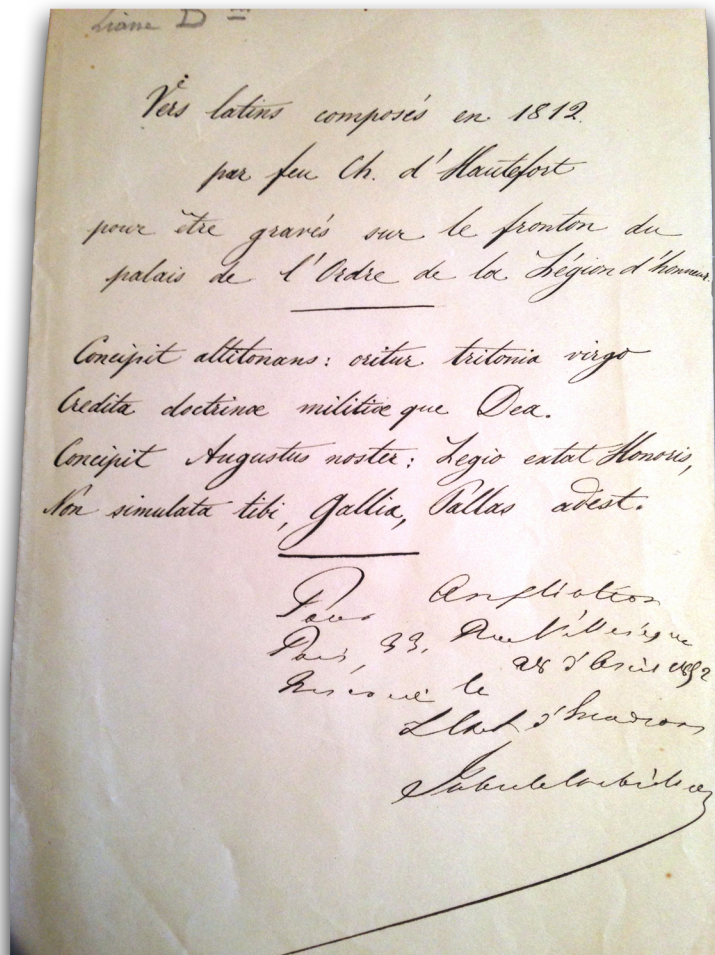 Vers latins composés en 1812.
par feu Ch. d'Hautefort
pour être gravés sur le fronton du
palais de l'Ordre de la Légion d'honneur.
Concipit altitonans: oritur tritonia virgo
Credita doctrinæ militiæque Dea.
Concipit Augustus noster: Legio extat Honoris,
Non simulata tibi, Gallia, Pallas adest.
Pour Ampliation
Paris, 33, Rue
28 d'Avril 1892
le
d'Escadrons